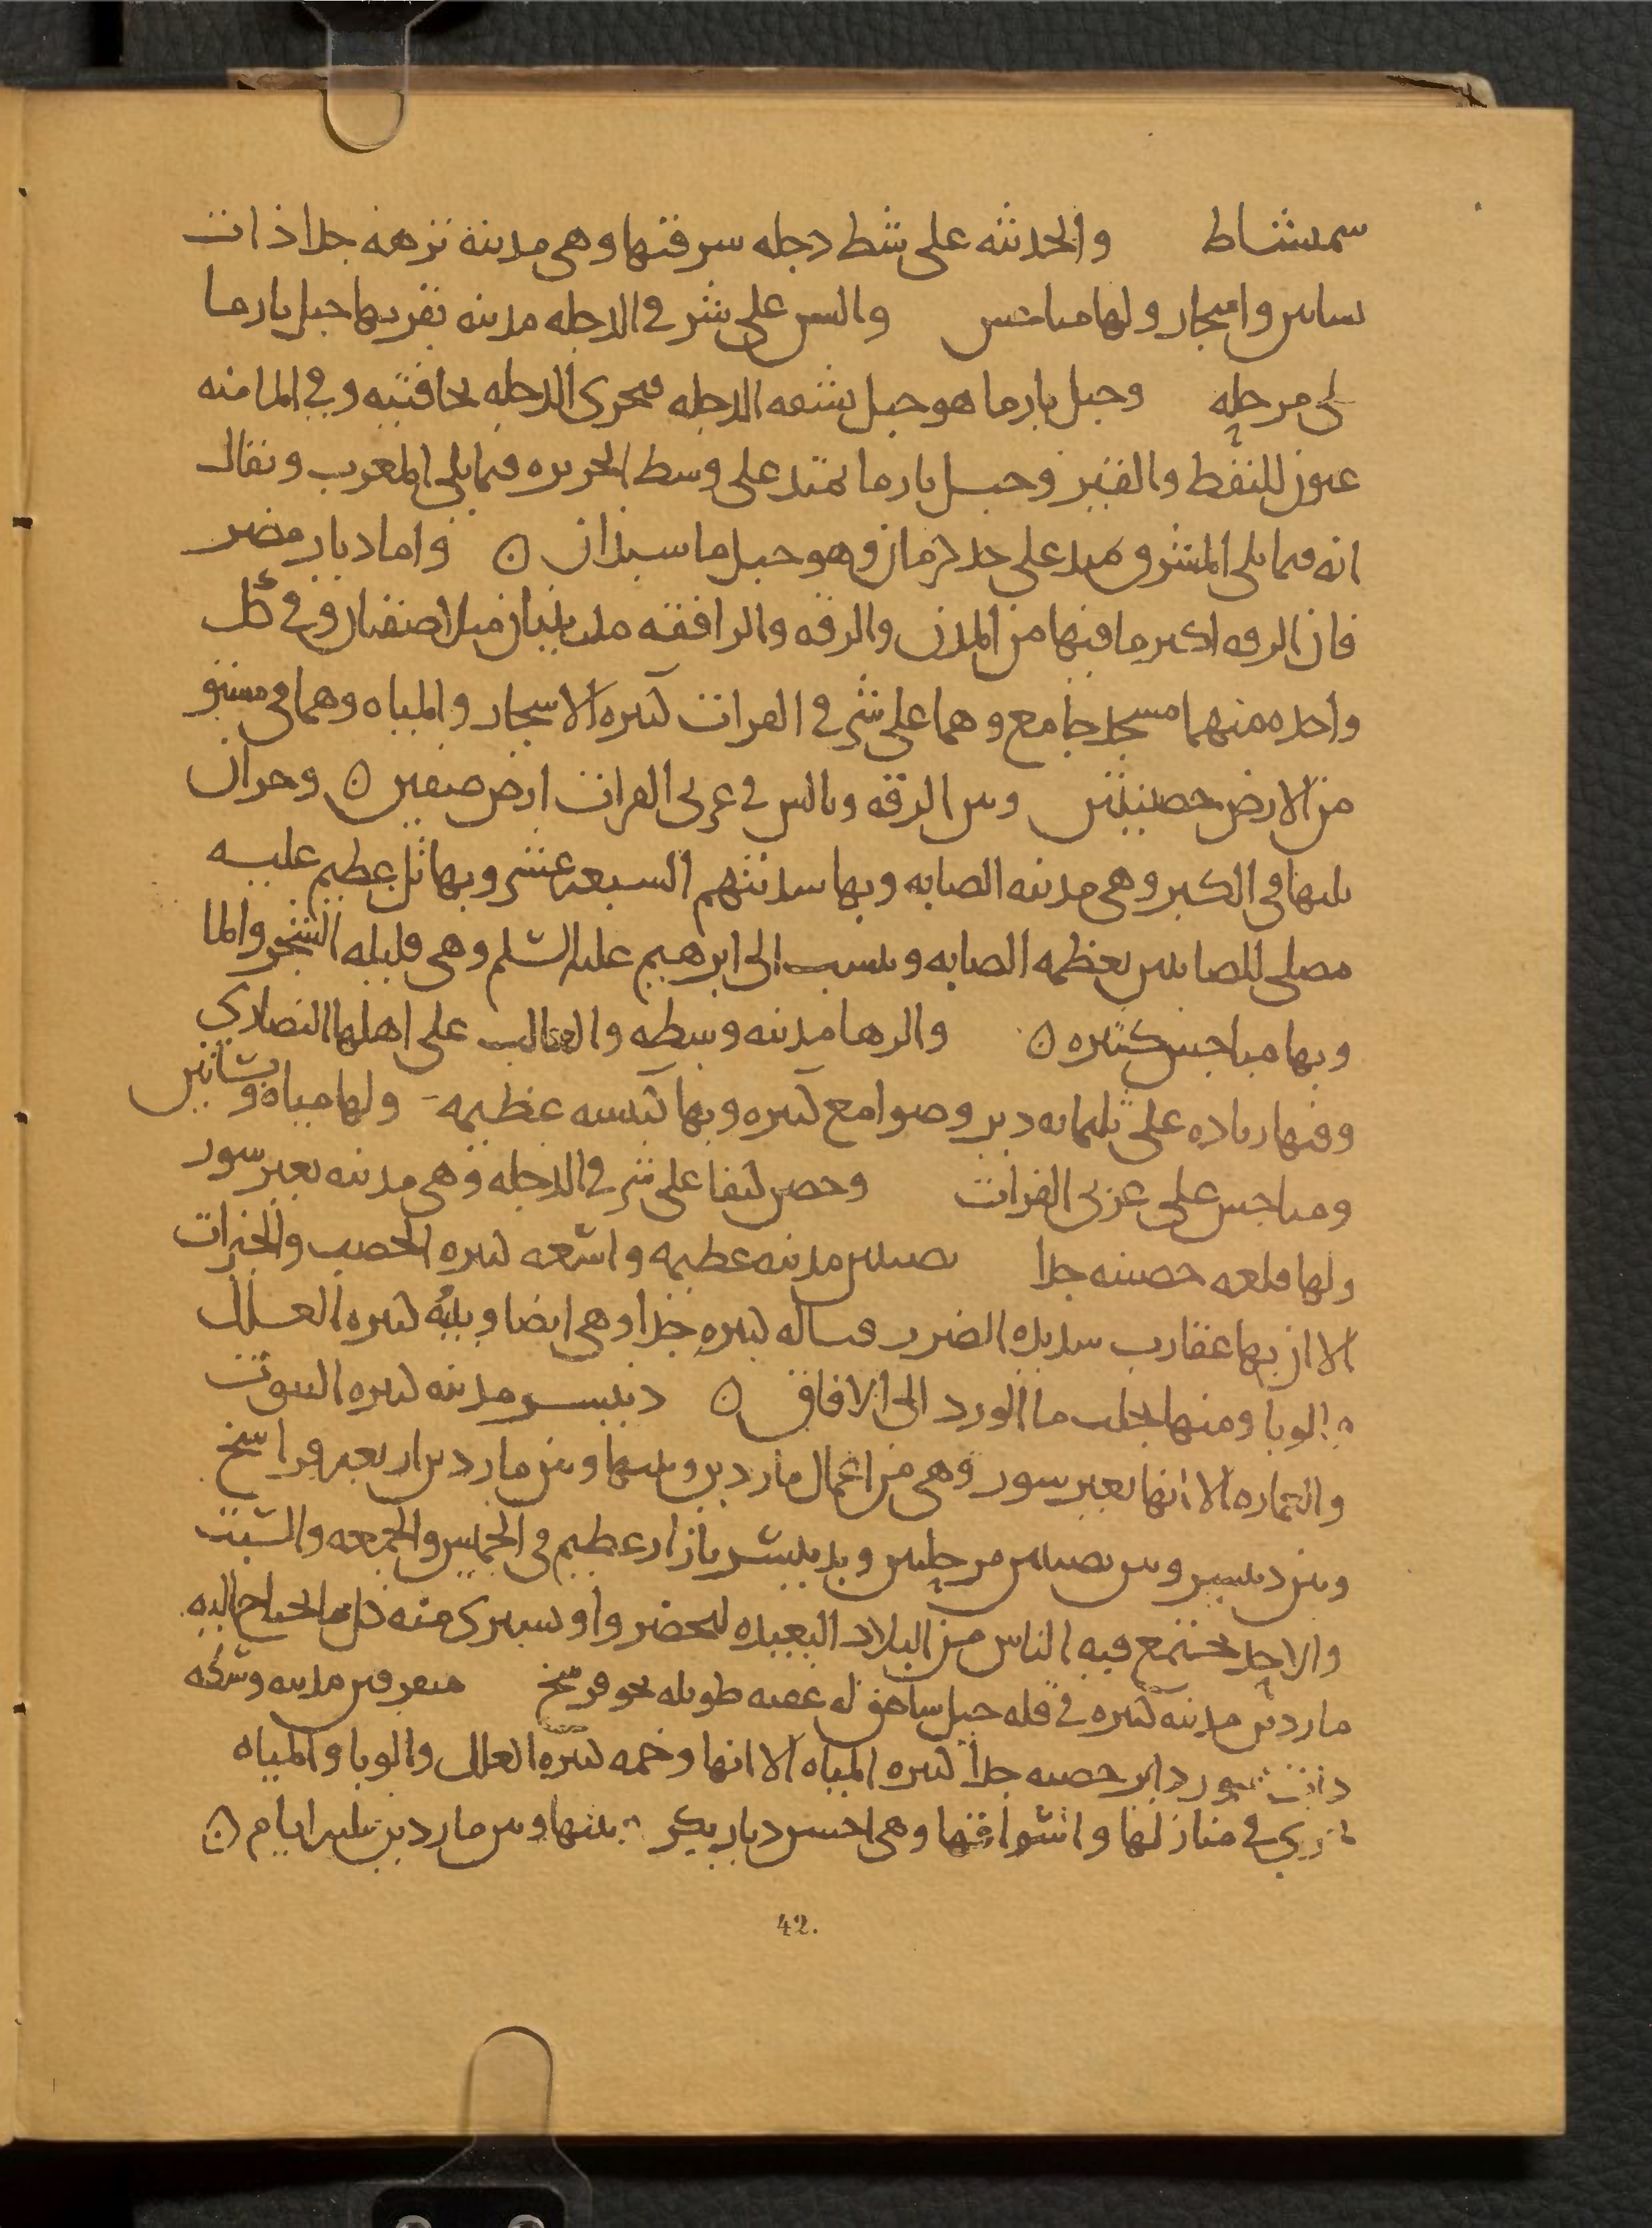 سمشاط والحدثه على شط دجله سرقيها وهي مدينه نزهه جدا ذات
بساتين واشجار ولها مباخس والسن على شرقي الدجله مدينه بقربها جبل بارما
على مرحله وجبل بارما هو جبل يشقه الدجله فيجري الدجله بحافتيه وفي الما منه
عيون للنفط والقير وجبل بارما يمتد على وسط الجزيره فيما يلي المغرب ويقال
انه فيما يلي المشرق يمتد على حد كرمان وهو جبل ماسبذان ○ واما ديار مضر
فان الرقه اكبر ما فيها من المدن والرقه والرافقه مدينتان متلاصقتان وفي كل
واحده منهما مسجد جامع وهما على شرقي الفرات كثيره الاشجار والمياه وهما في مستو
من الارض خصيبتين وبين الرقه وبالس في غربي الفرات ارض صفين ○ وحران
يليها في الكبر وهي مدينه الصابه وبها سدنتهم السبعه عشر وبها تل عظيم عليه
مصلى للصابين يعظمه الصابه وينسب الى ابرهيم عليه السلم وهي قليله الشجر والما
وبها مباخس كثيره ○ والرها مدينه وسطه والغالب على اهلها النصاري
وفيها زياده على ثلثمايه دير وصوامع كثيره وبها كنيسه عظيمه ولها مياه وبساتين
ومباخس على غربي الفرات وحصن كيفا على شرقي الدجله وهي مدينه بغير سور
ولها قلعه حصينه جدا نصيبين مدينه عظيمه واسعه كثيره الخصب والخيرات
الا ان بها عقارب شديده الضرر قتاله كثيره جدا وهي ايضا وبيه كثيره العلل
والوبا ومنها يجلب ما الورد الى الافاق ○ دنيسر مدينه كثيره البيوت
والعماره الا انها بغير سور وهي من اعمال ماردين وبينها وبين ماردين اربعه فراسخ
وبين دنيسر وبين نصيبين مرحلتين وبدنيسر بازار عظيم في الخميس والجمعه والسبت
والاحد يجتمع فيه الناس من البلاد البعيده ليحضروا ويشترى منه كل ما يحتاج اليه
ماردين مدينه كثيره في قله جبل شاهق له عقبه طويله نحو فرسخ ميافرقين مدينه وسطه
ذات سور داير حصينه جدا كثيره المياه الا انها وخمه كثيره العلل والوبا والمياه
تجري في منازلها واسواقها وهي احسن ديار بكر بينها وبين ماردين ثلثه ايام ○
42.